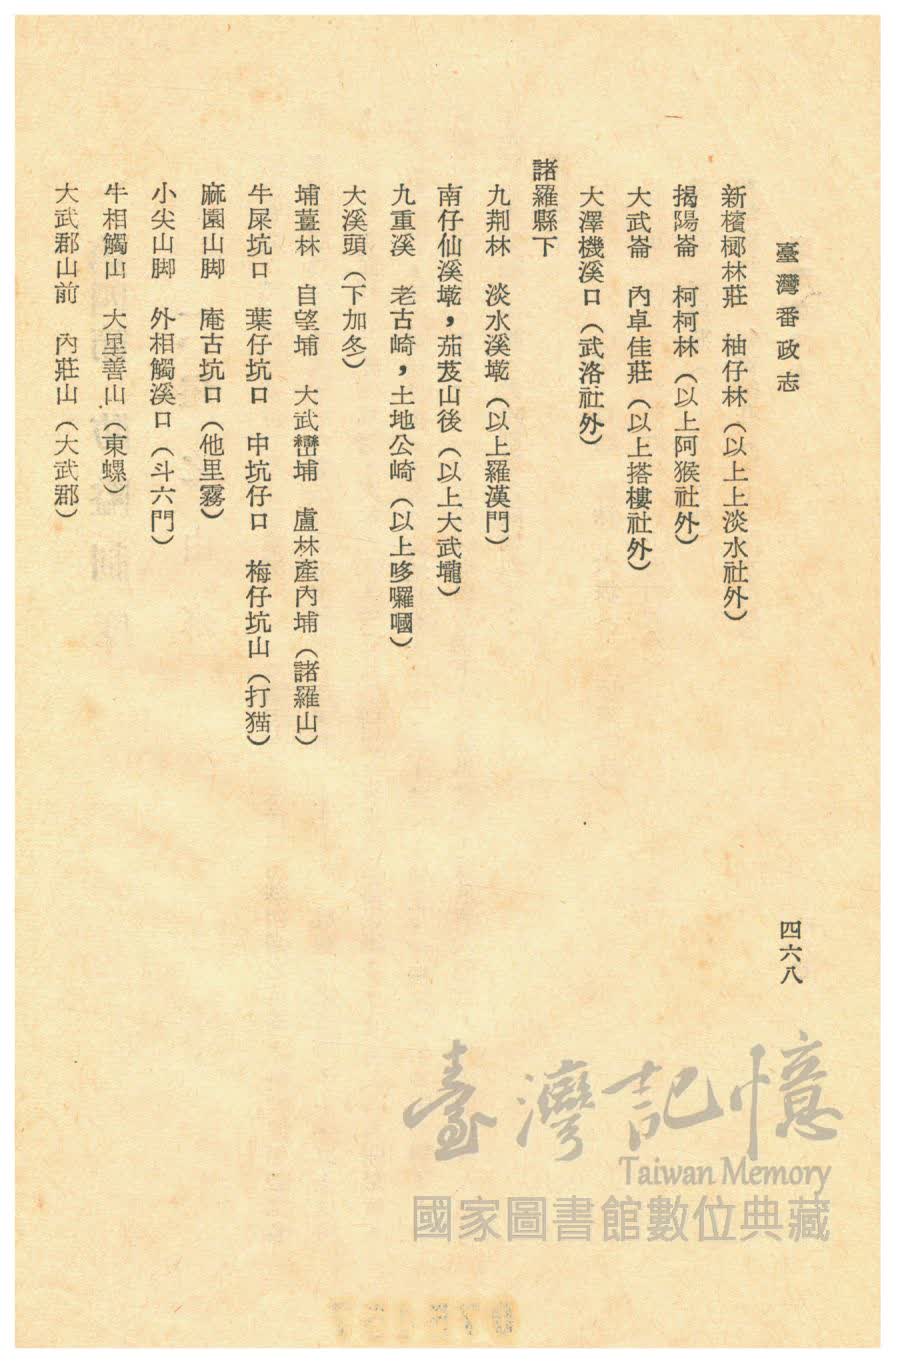 臺灣番政志
四六八
新檳榔林莊　柚仔林（以上上淡水社外）
揭陽崙　柯柯林（以上阿猴社外）
大武崙　內卓佳莊（以上搭樓社外）
大澤機溪口（武洛社外）
諸羅縣下
九荆林　淡水溪墘（以上羅漢門）
南仔仙溪墘，茄芨山後（以上大武壠）
九重溪　老古崎，土地公崎（以上哆囉嘓）
大溪頭（下加冬）
埔薑林　自望埔　大武巒埔　盧林產內埔（諸羅山）
牛屎坑口　葉仔坑口　中坑仔口　梅仔坑山（打猫）
麻園山脚　庵古坑口（他里霧）
小尖山脚　外相觸溪口（斗六門）
牛相觸山　大里善山（東螺）
大武郡山前　內莊山（大武郡）
臺灣記憶
Taiwan Memory
國家圖書館數位典藏